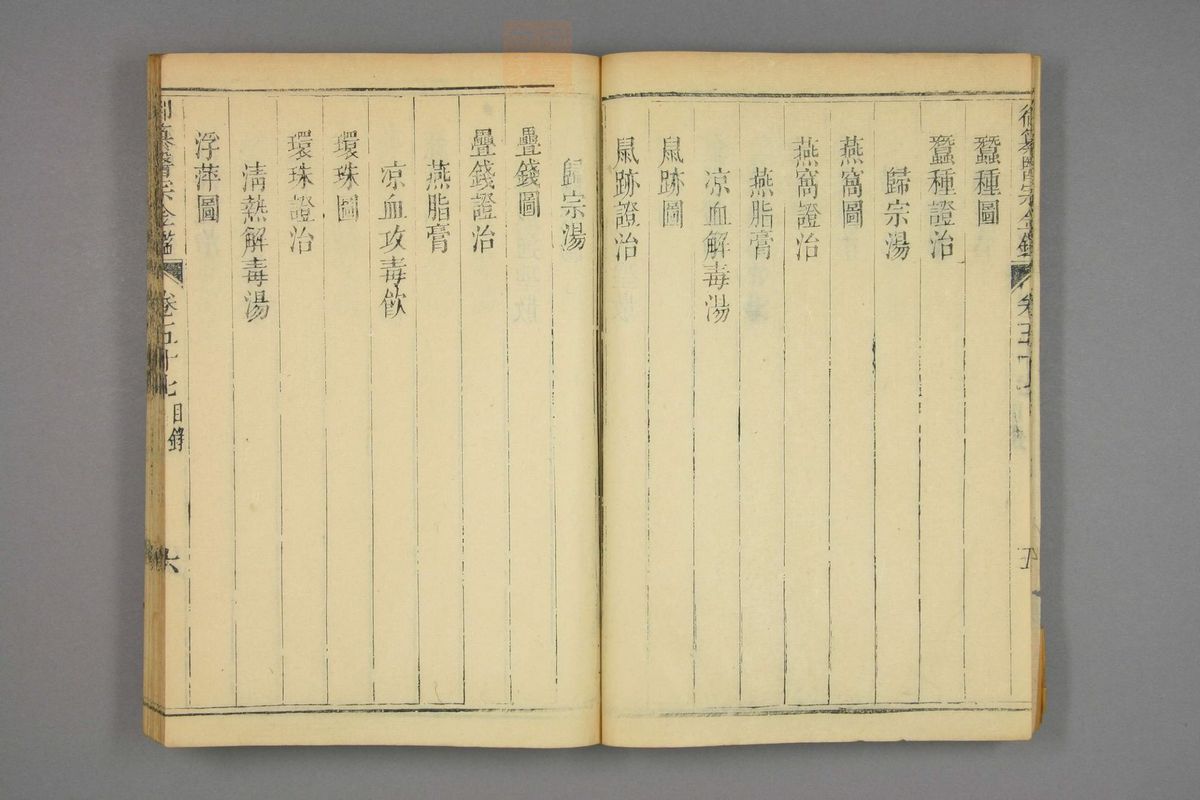 蠶種圖
蠶種證治
歸宗湯
燕窩圖
燕窩證治
燕脂膏
凉血解毒湯
鼠跡圖
鼠跡證治
歸宗湯
疊錢圖
疊錢證治
燕脂膏
凉血攻毒飲
環珠圖
環珠證治
清熱解毒湯
浮萍圖
御纂醫宗金鑑 卷五十七 目錄 六